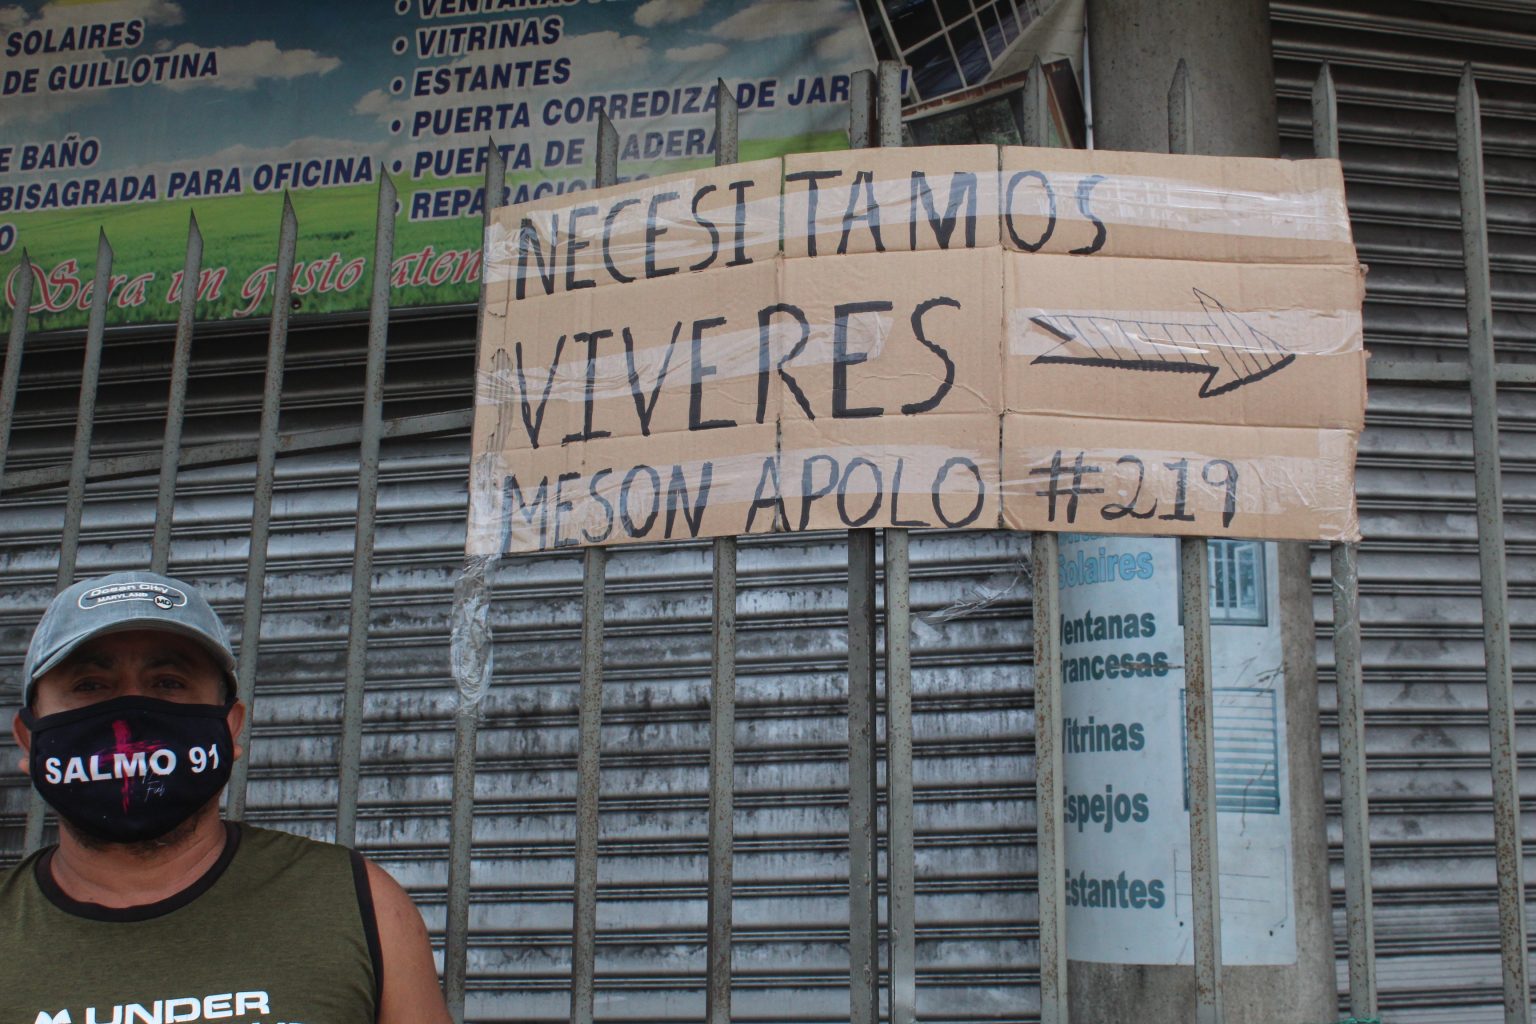 SOLAIRES
DE GUILLOTINA
BAÑO
BISAGRADA PARA OFICINA
• VENTANAS
• VITRINAS
• ESTANTES
• PUERTA CORREDIZA DE
• PUERTA DE MADERA
Sera un gusto
NECESITAMOS
VIVERES
MESON APOLO #219
Solaires
Ventanas
Francesas
Vitrinas
Espejos
Estantes
Ocean City
MARYLAND MD
SALMO 91
UNDER